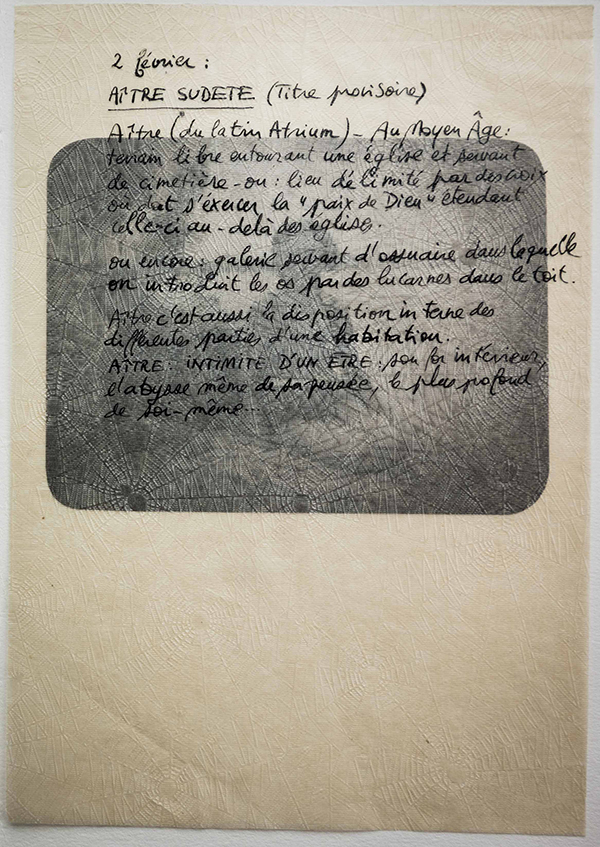 2 février :
AÎTRE SUDETE (Titre provisoire)
Aître (du latin Atrium) - Au Moyen Âge :
terrain libre entourant une église et servant
de cimetière - ou : lieu délimité par des croix
où doit s'exercer la "paix de Dieu" étendant
celle-ci au-delà des églises.
ou encore : galerie servant d'ossuaire dans laquelle
on introduit les os par des lucarnes dans le toit.
Aître c'est aussi la disposition interne des
différentes parties d'une habitation.
AÎTRE : INTIMITE D'UN ETRE : son for intérieur,
l'abysse même de sa pensée, le plus profond
de soi-même...